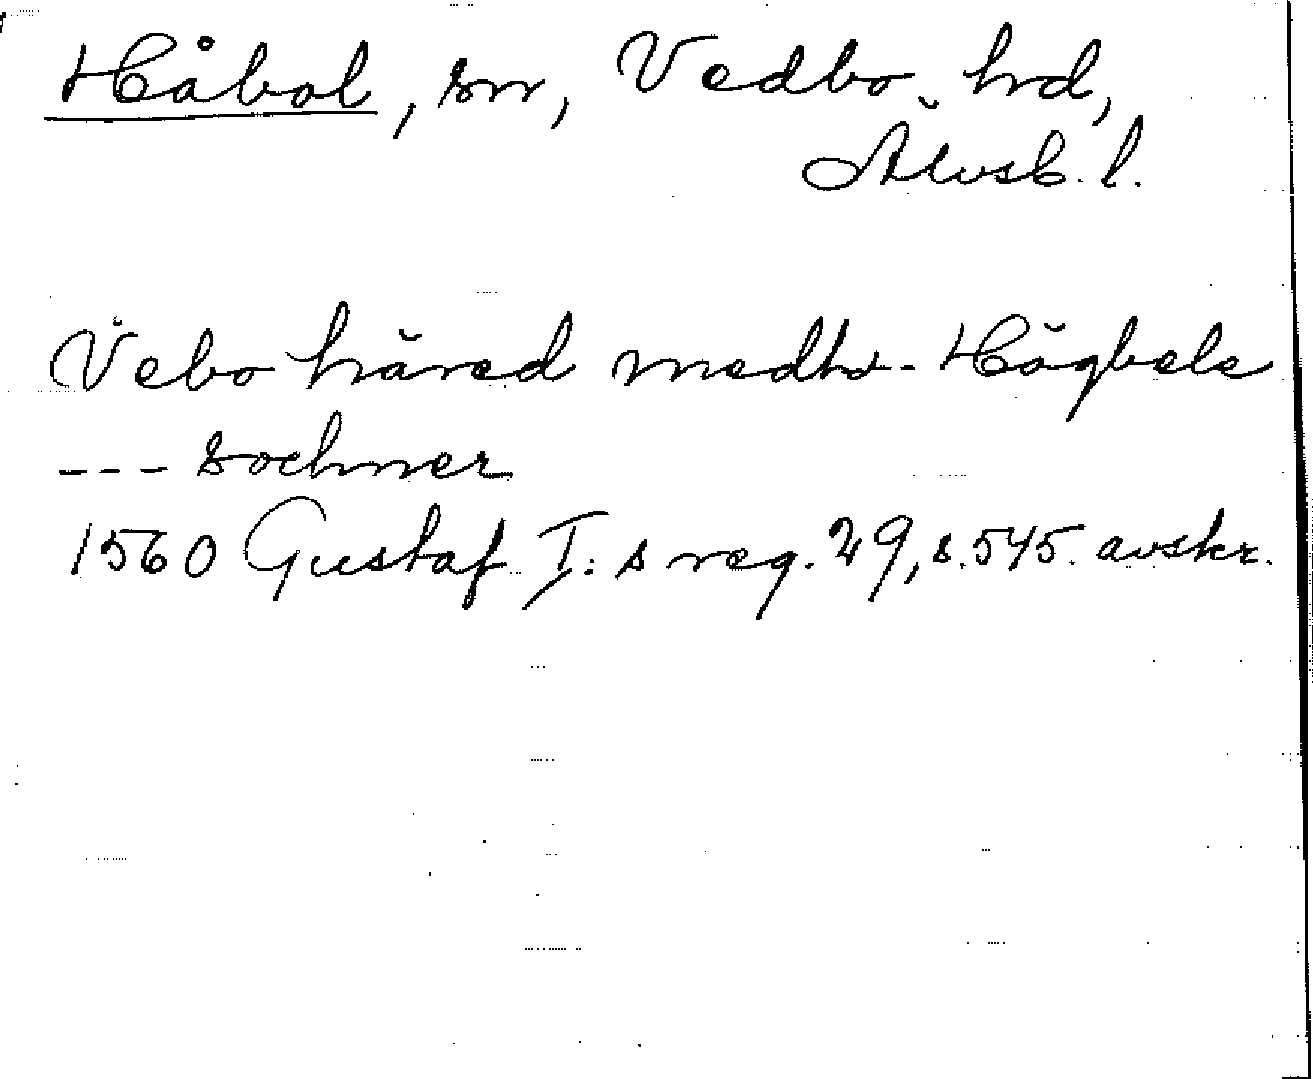 Håbol, sn, Vedbo hd,
Älvsb. l.
Vebo häred medh - Högbels
--- sochner
1560 Gustaf I: s reg. 29, s. 545. avskr.